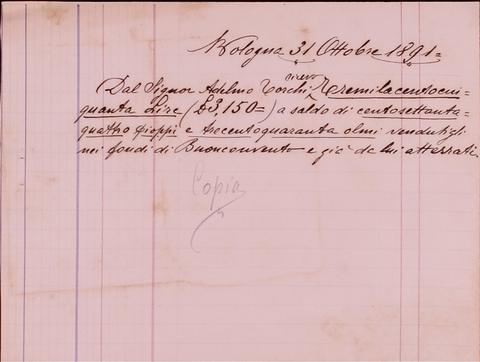 Bologna 31 Ottobre 1891=
ricevo
Dal Signor Adelmo Torchi Tremilacentocin=
quanta Lire (£3,150=) a saldo di centosettanta=
quattro pioppi e trecentoquaranta olmi vendutigli
nei fondi di Buonconvento e già da lui atterrati.
Copia